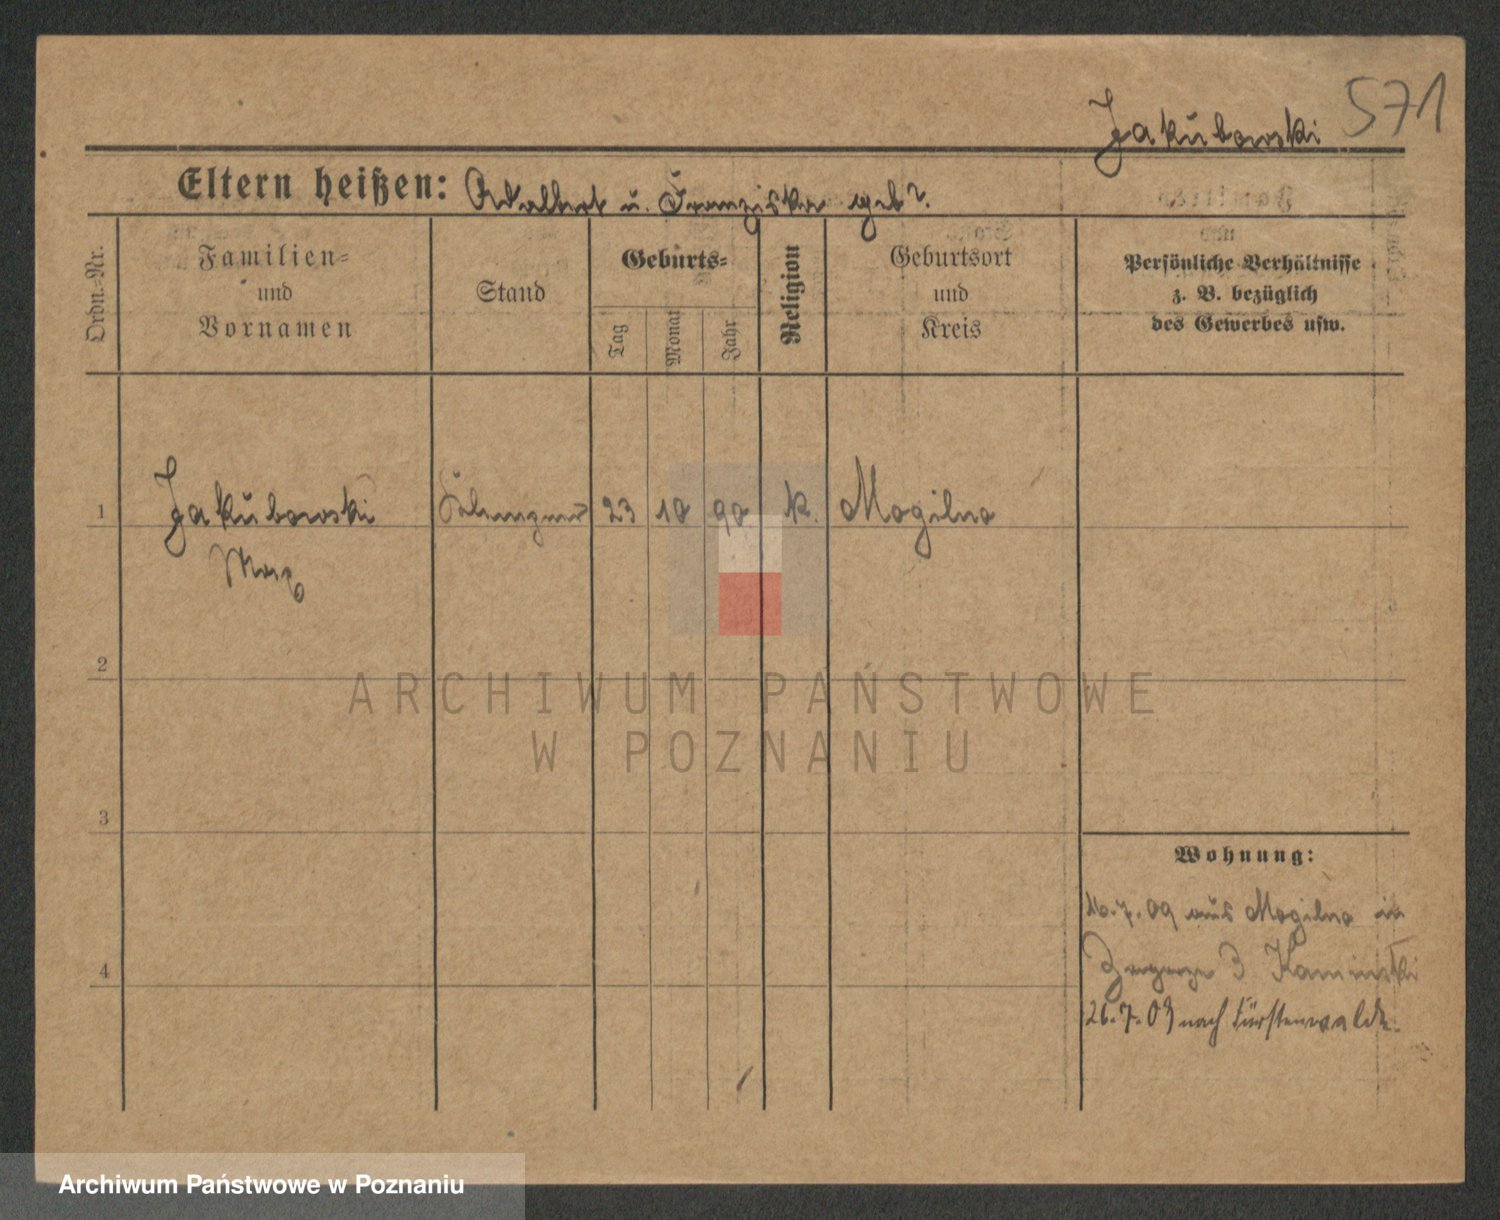 Jakubowski 571
Eltern heißen: Adalbert u. Franziska geb?.
Ordn.-Nr.
Familien-
und
Vornamen
Stand
Geburts-
Tag
Monat
Jahr
Religion
Geburtsort
und
Kreis
Persönliche Verhältnisse
z. B. bezüglich
des Gewerbes usw.
1 Jakubowski 23 10 90 k. Mogilno
Max
2
ARCHIWUM PAŃSTWOWE
W POZNANIU
3
Wohnung:
16.7.09 aus Mogilno in
4
3 Kaminski
26.7.09 nach Fürstenwalde.
Archiwum Państwowe w Poznaniu